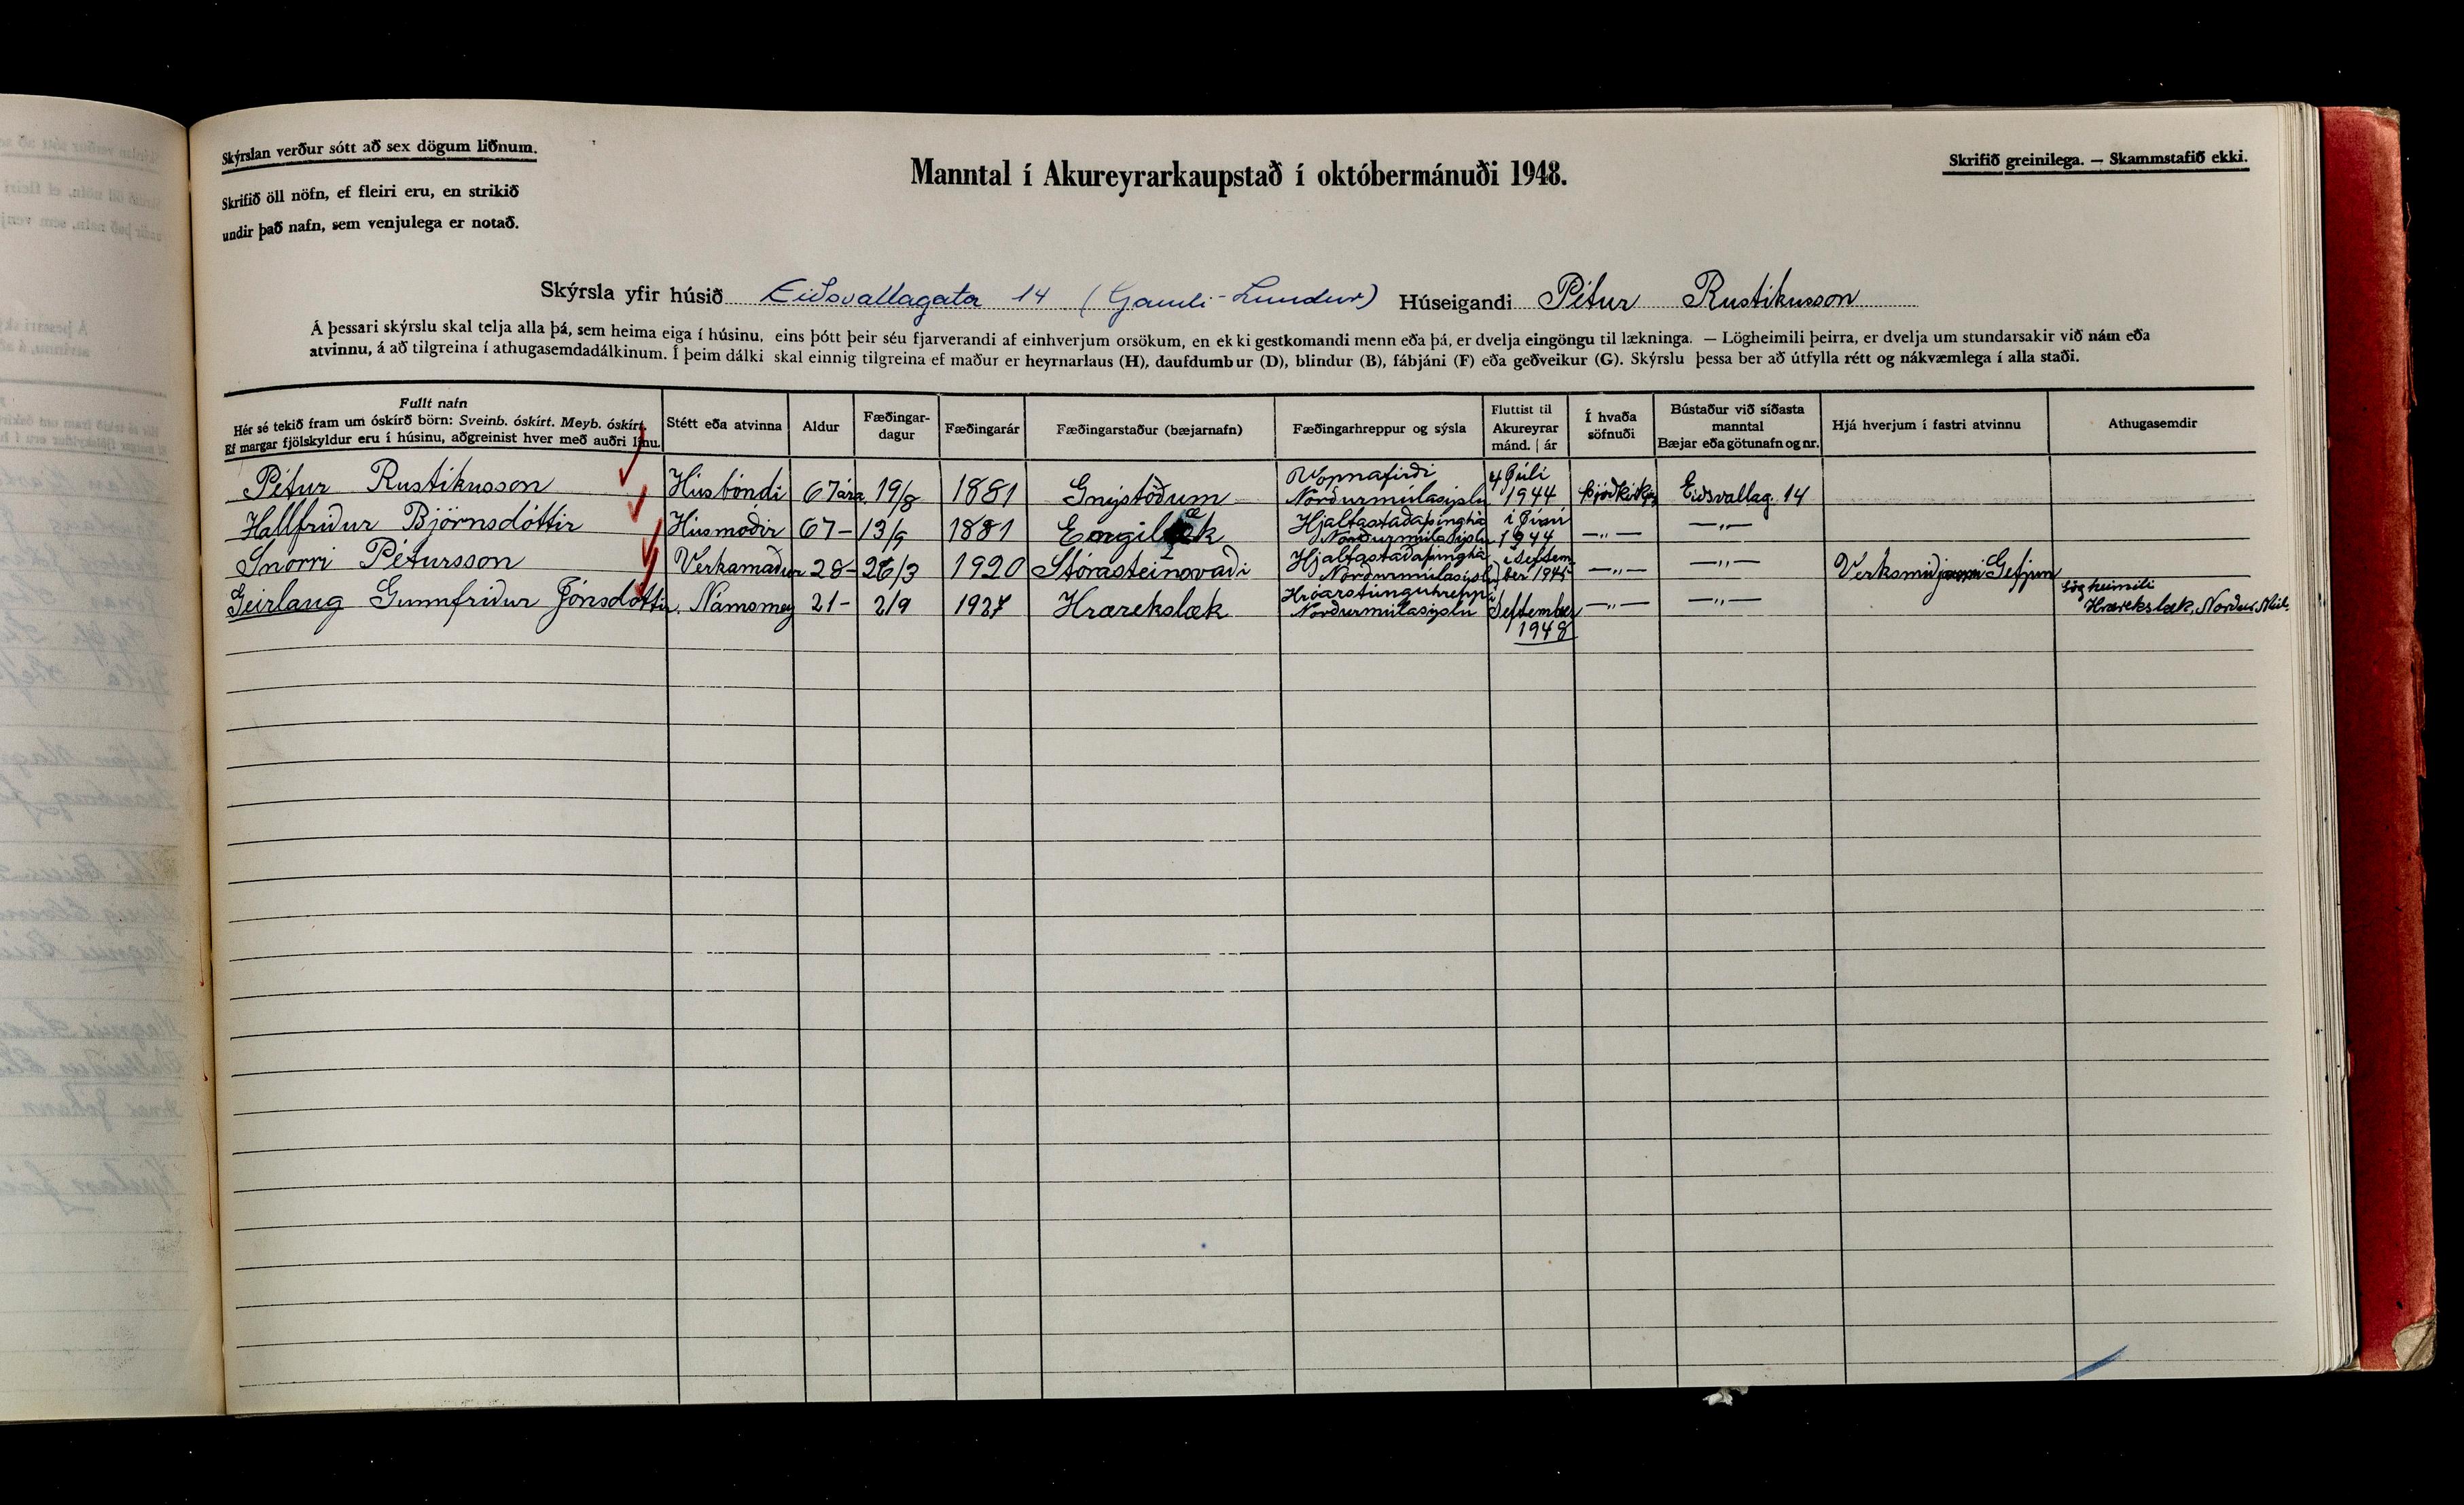 Skýrslan verður sótt að sex dögum liðnum.
Skrifið öll nöfn, ef fleiri eru, en strikið
undir það nafn, sem venjulega er notað.
Manntal í Akureyrarkaupstað í októbermánuði 1948.
Skrifið greinilega. — Skammstafið ekki.
Skýrsla yfir húsið Eiðsvallagata 14 (Gamli-Lundur) Húseigandi Pétur Rustikusson
Á þessari skýrslu skal telja alla þá, sem heima eiga í húsinu, eins þótt þeir séu fjarverandi af einhverjum orsökum, en ekki gestkomandi menn eða þá, er dvelja eingöngu til lækninga. — Lögheimili þeirra, er dvelja um stundarsakir við nám eða
atvinnu, á að tilgreina í athugasemdadálkinum. Í þeim dálki skal einnig tilgreina ef maður er heyrnarlaus (H), daufdumbur (D), blindur (B), fábjáni (F) eða geðveikur (G). Skýrslu þessa ber að útfylla rétt og nákvæmlega í alla staði.
Fullt nafn
Hér sé tekið fram um óskírð börn: Sveinb. óskírt. Meyb. óskírt.
Ef margar fjölskyldur eru í húsinu, aðgreinist hver með auðri línu.
Stétt eða atvinna
Aldur
Fæðingar-
dagur
Fæðingarár
Fæðingarstaður (bæjarnafn)
Fæðingarhreppur og sýsla
Fluttist til
Akureyrar
mánd. | ár
Í hvaða
söfnuði
Bústaður við síðasta
manntal
Bæjar eða götunafn og nr.
Hjá hverjum í fastri atvinnu
Athugasemdir
Pétur Rustikusson Húsbóndi 67 ára 19/8 1881 Gnýstöðum Vopnafirði
Norðurmúlasýslu 4 Júlí
1944 Þjóðkirkju Eiðsvallag. 14
Hallfríður Björnsdóttir Húsmóðir 67 – 13/9 1881 Engilæk Hjaltastaðaþinghá
Norðurmúlasýslu í Júní
1944 —„— —„—
Snorri Pétursson Verkamaður 28 – 26/3 1920 Stórasteinsvaði Hjaltastaðaþinghá
Norðurmúlasýslu í Septem-
ber 1945 —„— —„— Gefjun
Geirlaug Gunnfríður Jónsdóttir. Námsmey 21 – 2/9 1927 Hrærekslæk Hróarstunguhreppi
Norðurmúlasýslu September
1948 —„— —„— Lögheimili
Hrærekslæk, Norður Múl.